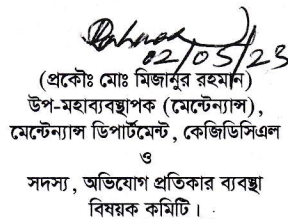 02/05/23
(প্রকৌঃ মোঃ মিজানুর রহমান)
উপ-মহাব্যবস্থাপক (মেন্টেন্যান্স),
মেন্টেন্যান্স ডিপার্টমেন্ট, কেজিডিসিএল
ও
সদস্য, অভিযোগ প্রতিকার ব্যবস্থা
বিষয়ক কমিটি।